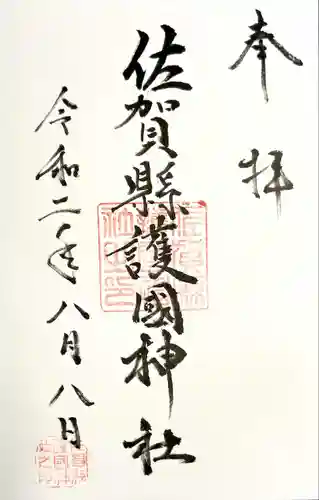 奉拝
佐賀縣護國神社
令和二年八月八日